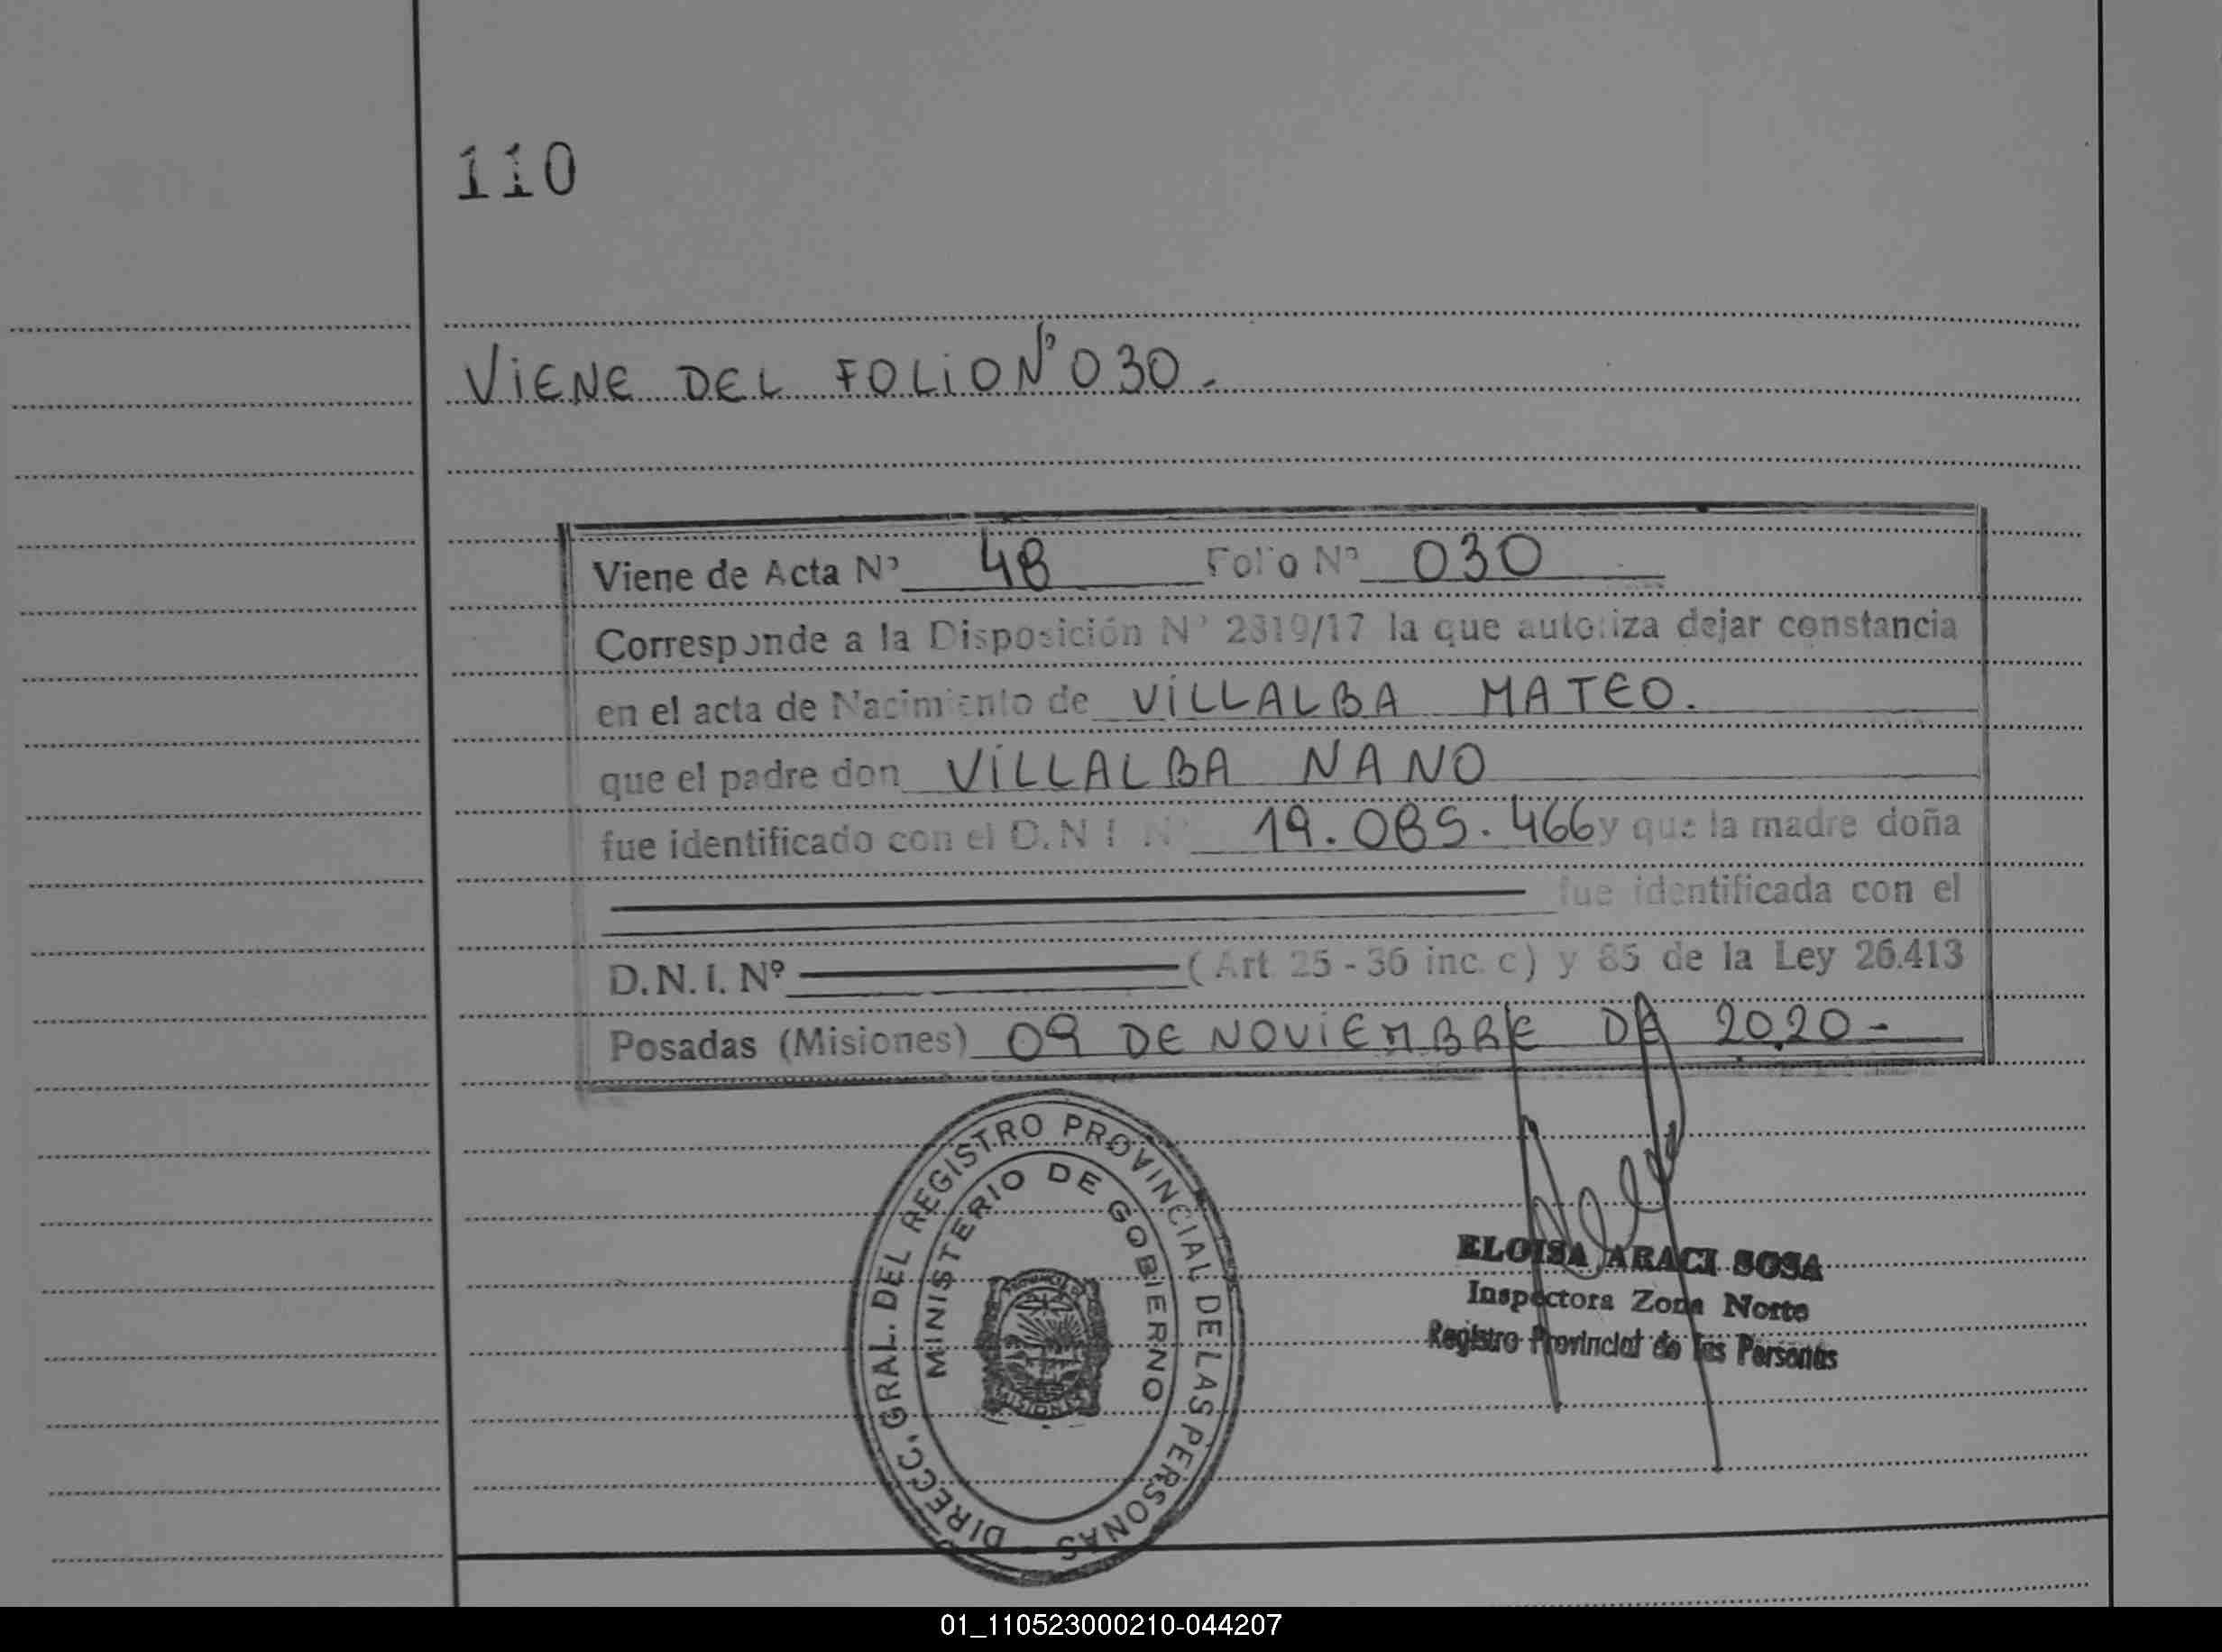 110
VIENE DEL FOLIO Nº 030.-
Viene de Acta Nº 48 Folio Nº 030
Corresponde a la Disposición Nº 2319/17 la que autoriza dejar constancia
en el acta de Nacimiento de VILLALBA MATEO.
que el padre don VILLALBA NANO
fue identificado con el D.N.I. Nº 19.085.466 y que la madre doña
fue identificada con el
D.N.I. Nº (Art 25 - 36 inc. c) y 85 de la Ley 26.413
Posadas (Misiones) 09 DE NOVIEMBRE DE 2020-
DIRECC. GRAL. DEL REGISTRO PROVINCIAL DE LAS PERSONAS
MINISTERIO DE GOBIERNO
PROVINCIA DE
MISIONES
ELOISA ARACI SOSA
Inspectora Zona Norte
Registro Provincial de las Personas
01_110523000210-044207